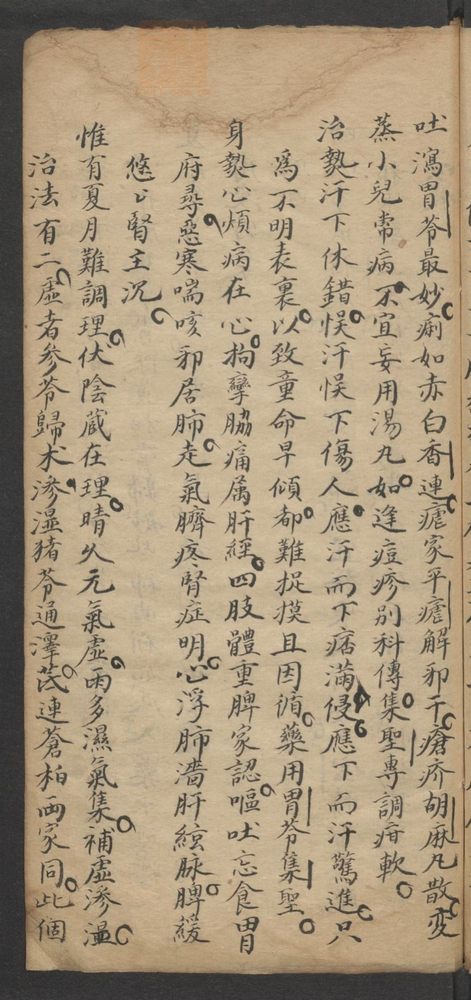 吐瀉胃苓最妙痢如赤白香連瘧家平瘧解邪干瘡疥胡麻凡散变
蒸小兒常病不宜妄用湯丸如逢痘疹别科傳集聖專調疳軟
治熱汗下休錯悮汗悮下傷人應汗而下痞滿侵應下而汗驚進只
為不明表裏以致童命早傾都難捉摸且因循藥用胃苓集聖
身熱心煩病在心拘攣脇痛属肝經四肢體重脾家認嘔吐忘食胃
府尋惡寒喘咳邪居肺走氣臍疼腎症明心浮肺濇肝絃脉脾緩
悠々腎主沉
惟有夏月難調理伏陰蔵在理晴久元氣虛雨多濕氣集補虛渗濕
治法有二虛者参苓歸术渗湿猪苓通澤芪連蒼柏両家同此個